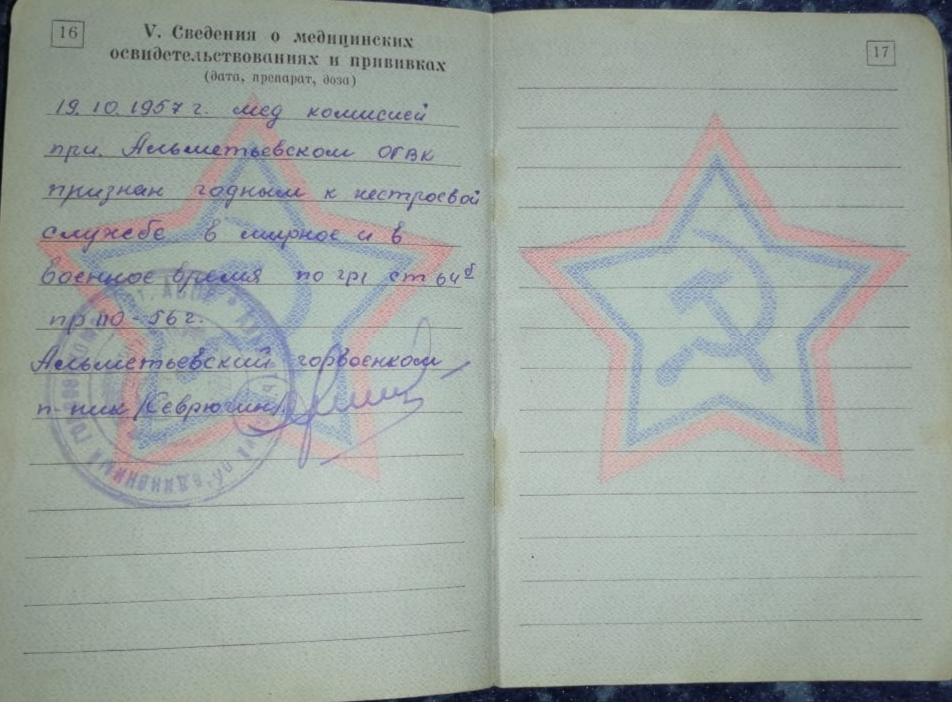 16
V. Сведения о медицинских
освидетельствованиях и прививках
(дата, препарат, доза)
19.10.1957 г. мед комисией
при. Альметьевском ОГВК
признан годным к нестроевой
службе в мирное и в
военное время по гр1 ст 64б
пр 110-56 г.
Альметьевский горвоенком
п-пик (Севрюгин)
17